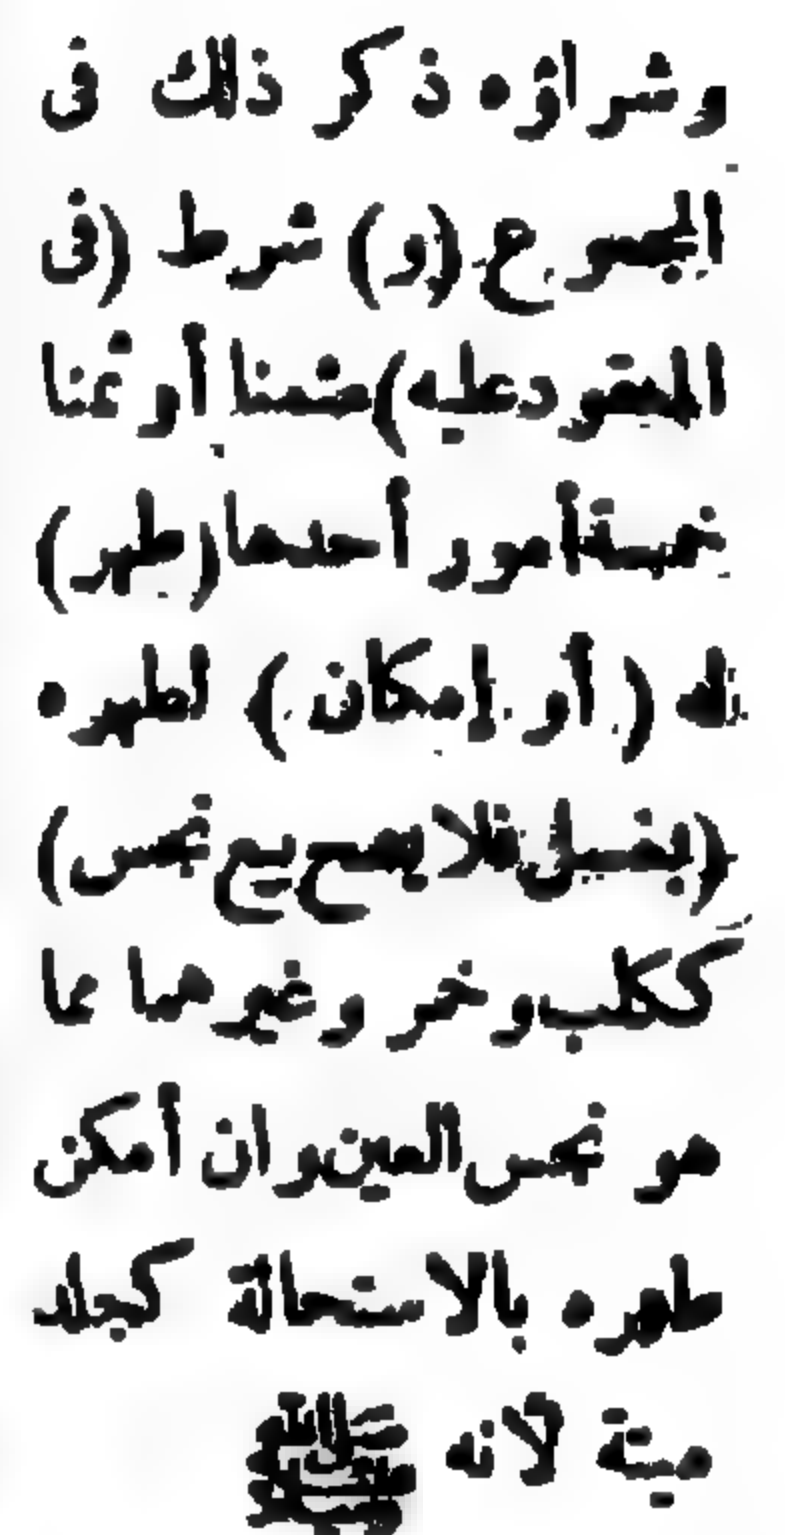 وشراؤه ذكر ذلك فى
المجموع (و) شرط (فى
المعقود عليه) مثمنا أو ثمنا
خمسة أمور أحدها (طهر)
له (أو إمكان) لطهره
(بغسل فلا يصح بيع نجس)
ككلب وخمر وغيرهما مما
هو نجس العين وان أمكن
طهره بالاستحالة كجلد
ميتة لانه ﷺ